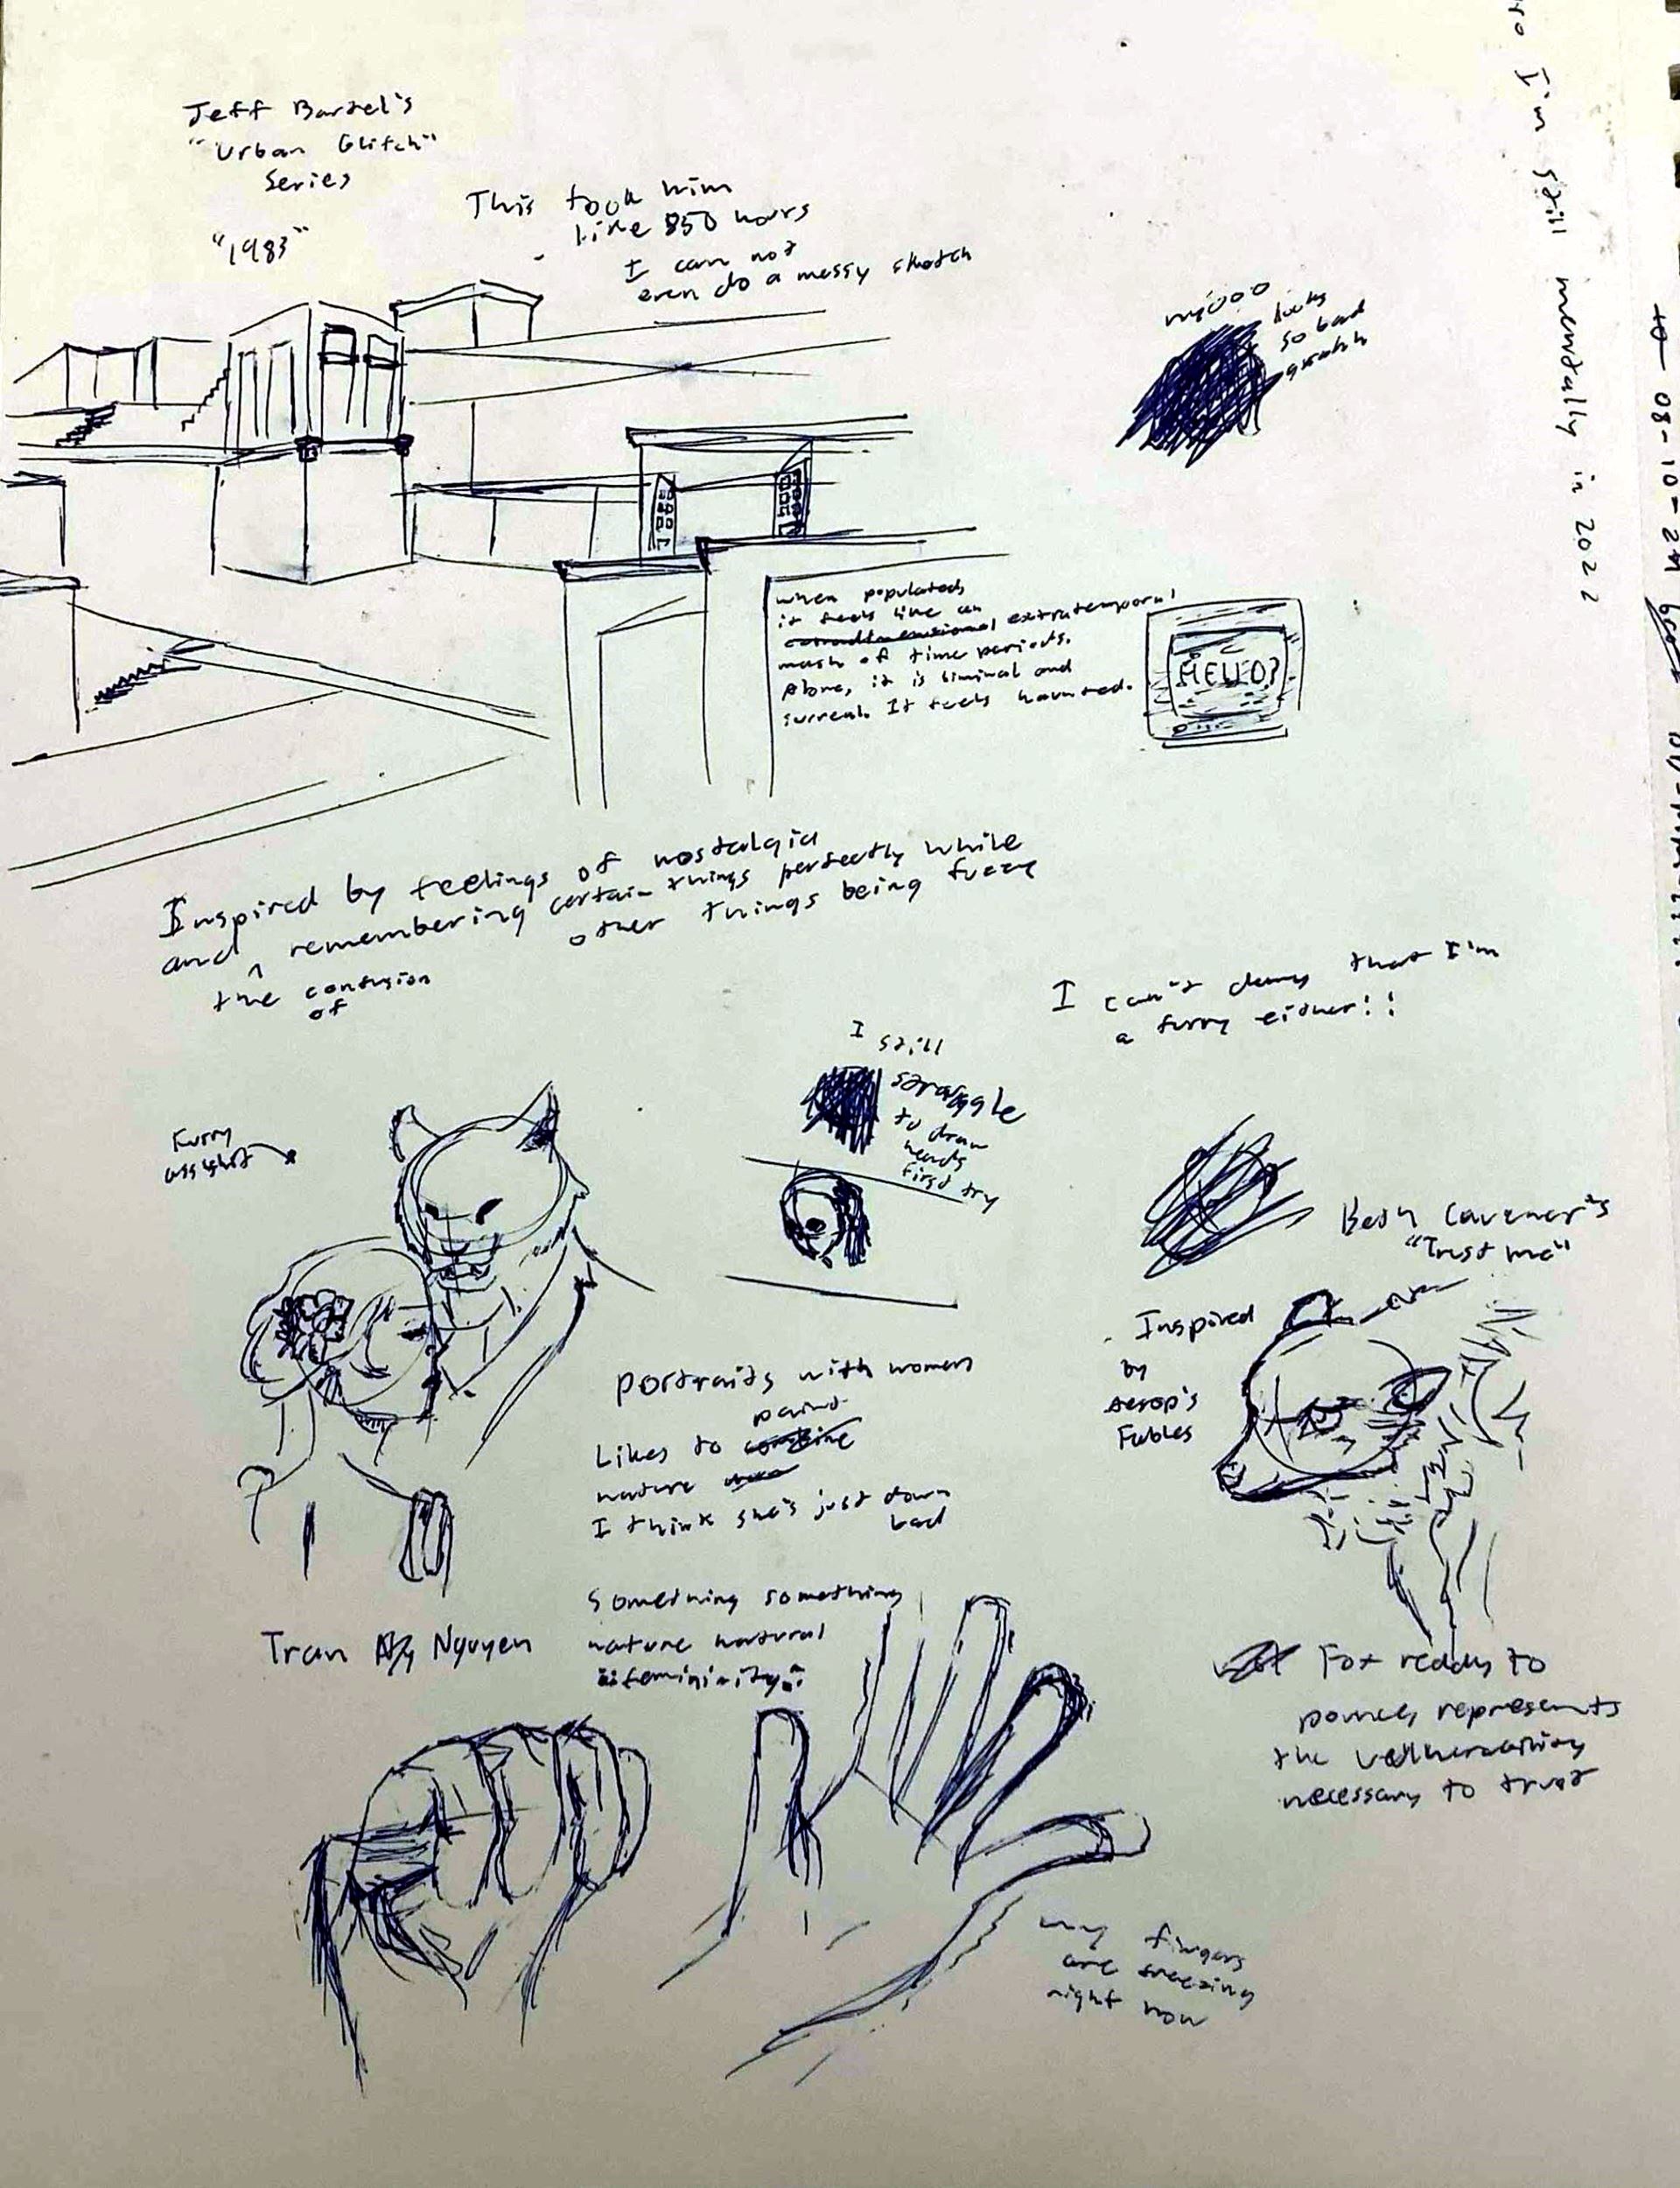 Jeff Bartel's
"Urban Glitch"
series
"1983"
This took him
like 850 hours
I can not
even do a messy sketch
looks
so bad
I'm still mentally in 2022
08-10-24
when populated,
it feels like an
extratemporal
mash of time periods.
Alone, it is liminal and
surreal. It feels haunted.
HELLO?
Inspired by feelings of nostalgia
and ^ remembering certain things perfectly while
other things being fuzzy
the confusion
of
I can't deny that I'm
a furry either!!
I still
struggle
to draw
heads
first try
Furry
Beth Cavener's
"Trust me"
Inspired
by
Aesop's
Fables
portraits with women
paint
Likes to
nature
I think she's just down
bad
Something something
nature natural
femininity
Tran Nguyen
Fox ready to
pounce, represents
the
necessary to trust
my fingers
are freezing
right now